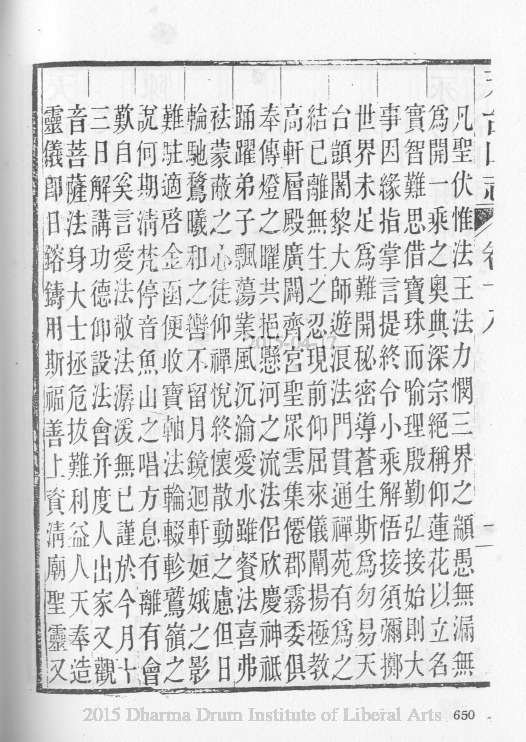 凡聖伏惟法王法力憫三界之顓愚無漏無
為開一乘之奧典深宗絕稱仰蓮花以立名
實智難思借寶珠而喻理殷勤弘接始則大
事因緣指掌言提終令小乘解悟接須彌擲
世界未足為難開秘密導蒼生斯為勿易天
台顗闍黎大師遊浪法門貫通禪苑有為之
結已離無生之忍現前仰屈來儀闡揚極教
高軒層殿廣闢齊宮聖眾雲集僊郡霧委俱
奉傳燈之曜共挹懸河之流法侶欣慶神祇
踊躍弟子飄蕩業風沉淪愛水雖餐法喜弗
袪蒙蔽之心徒仰禪悅終懷散動之慮但日
輪馳騖曦和之轡不留月鏡迴軒姮娥之影
難駐適啓金函便收寶軸法輪輟軫鷲嶺之
說何期清梵停音魚山之唱方息有離有會
歎自奚言愛法敬法潺湲無已謹於今月十
三日解講功德仰設法會并度人出家又觀
音菩薩法身大士拯危拔難利益人天奉造
靈儀卽日鎔鑄用斯福善上資清廟聖靈又
2015 Dharma Drum Institute of Liberal Arts
650